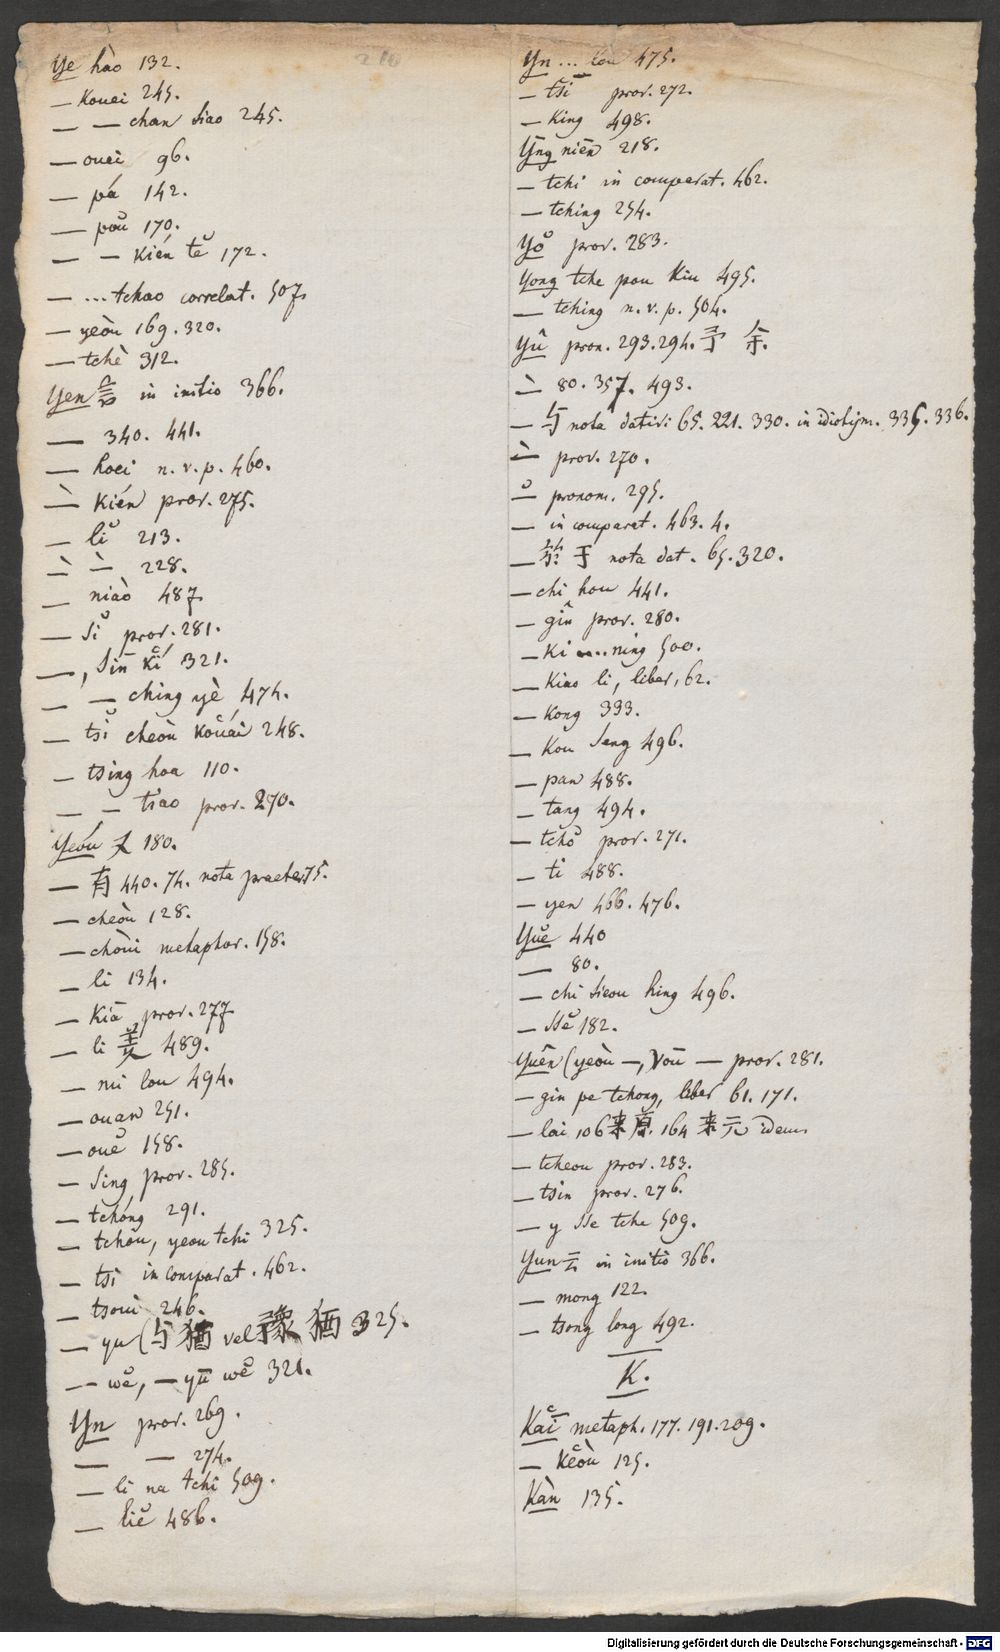 Ye hào 132.
— Kouei 245.
— — chan siao 245.
— ouei 96.
— pá 142.
— poŭ 170.
— — Kién tĕ 172.
— ... tchao correlat. 507.
— yeòu 169. 320.
— tchè 312.
Yen 言 in initio 366.
— 340. 441.
— hoei n. v. p. 460.
— Kién prov. 275.
— lĭ 213.
— — 228.
— niào 487.
— sĭ prov. 281.
—, sīn kí 321.
— — ching yè 474.
— tsĭ cheòu Kouái 248.
— tsing hoa 110.
— — tsao prov. 270.
Yeóu 又 180.
— 有 440. 74. nota praeter. 75.
— cheòu 128.
— chòui metaphor. 158.
— li 134.
— Kiā prov. 277
— li 羑 489.
— mi lou 494.
— ouan 251.
— ouĕ 158.
— sing prov. 285.
— tchóng 291.
— tchou, yeou tchi 325.
— tsi in comparat. 462.
— tsoui 246.
— yu (与 猶 vel 豫 猶 325.
— wĕ, — yū wĕ 321.
Yn prov. 269.
— — 274.
— li na tchi 509.
— liĕ 486.
Yn ... keu 475.
— tsī prov. 272.
— King 498.
Yng niēn 218.
— tchi in comparat. 462.
— tching 254.
Yŏ prov. 283.
Yong tche pou Kiu 495.
— tching n. v. p. 504.
Yû pron. 293. 294. 予 余.
— 80. 357. 493.
— 与 nota dativi 65. 221. 330. in idiotism. 335. 336.
— prov. 270.
— pronom. 295.
— in comparat. 463. 4.
— 於 于 nota dat. 65. 320.
— chi hou 441.
— gin prov. 280.
— Ki ... ning 500.
— Kiao li, liber, 62.
— Kong 333.
— Kou seng 496.
— pan 488.
— tang 494.
— tchŏ prov. 271.
— ti 488.
— yen 466. 476.
Yuĕ 440
— 80.
— chi sieou hing 496.
— ssĕ 182.
Yuên (yeòu —, Voū — prov. 281.
— gin pe tchong, liber 61. 171.
— lai 106 来原. 164 来元 idem.
— tcheou prov. 283.
— tsin prov. 276.
— y sse tche 509.
Yun 云 in initio 366.
— mong 122.
— tsong long 492.
K.
Kaī metaph. 177. 191. 209.
— Keòu 125.
Kàn 135.
Digitalisierung gefördert durch die Deutsche Forschungsgemeinschaft - DFG